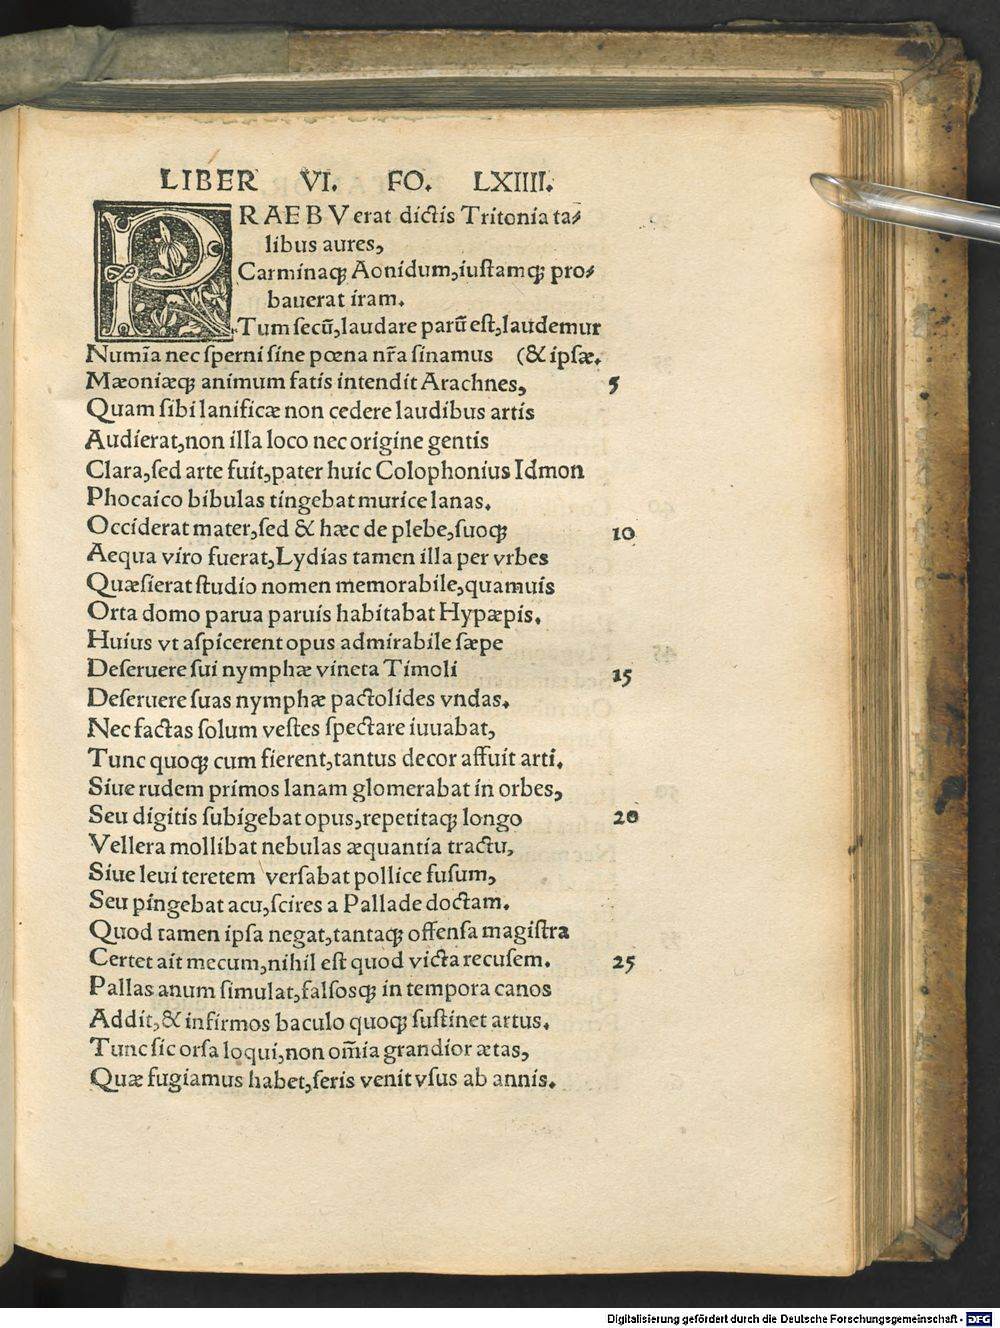 LIBER VI. FO. LXIIII.
PRAEBVerat dictis Tritonia ta⸗
libus aures,
Carminaqꝫ Aonidum,iuſtamqꝫ pro⸗
bauerat iram.
Tum ſecū,laudare parū eſt,laudemur
Numīa nec ſperni ſine pœna nr̄a ſinamus (& ipſæ.
Mæoniæqꝫ animum fatis intendit Arachnes, 5
Quam ſibi lanificæ non cedere laudibus artis
Audierat,non illa loco nec origine gentis
Clara,ſed arte fuit,pater huic Colophonius Idmon
Phocaico bibulas tingebat murice lanas.
Occiderat mater,ſed & hæc de plebe,ſuoqꝫ 10
Aequa viro fuerat,Lydias tamen illa per vrbes
Quæſierat ſtudio nomen memorabile,quamuis
Orta domo parua paruis habitabat Hypæpis.
Huius vt aſpicerent opus admirabile ſæpe
Deſeruere ſui nymphæ vineta Timoli 15
Deſeruere ſuas nymphæ pactolides vndas.
Nec factas ſolum veſtes ſpectare iuuabat,
Tunc quoqꝫ cum fierent,tantus decor affuit arti.
Siue rudem primos lanam glomerabat in orbes,
Seu digitis ſubigebat opus,repetitaqꝫ longo 20
Vellera mollibat nebulas æquantia tractu,
Siue leui teretem verſabat pollice fuſum,
Seu pingebat acu,ſcires a Pallade doctam.
Quod tamen ipſa negat,tantaqꝫ offenſa magiſtra
Certet ait mecum,nihil eſt quod victa recuſem. 25
Pallas anum ſimulat,falſosqꝫ in tempora canos
Addit,& infirmos baculo quoqꝫ ſuſtinet artus.
Tunc ſic orſa loqui,non om̄ia grandior ætas,
Quæ fugiamus habet,ſeris venit vſus ab annis.
Digitalisierung gefördert durch die Deutsche Forschungsgemeinschaft - DFG